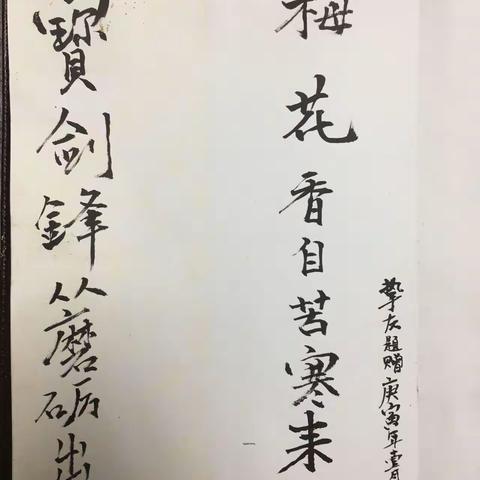 寳剑鋒从磨砺出
梅花香自苦寒来
挚友题赠庚寅年壹月